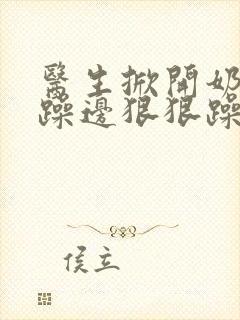 醫生掀開奶
躁邊狠狠躁
侯立